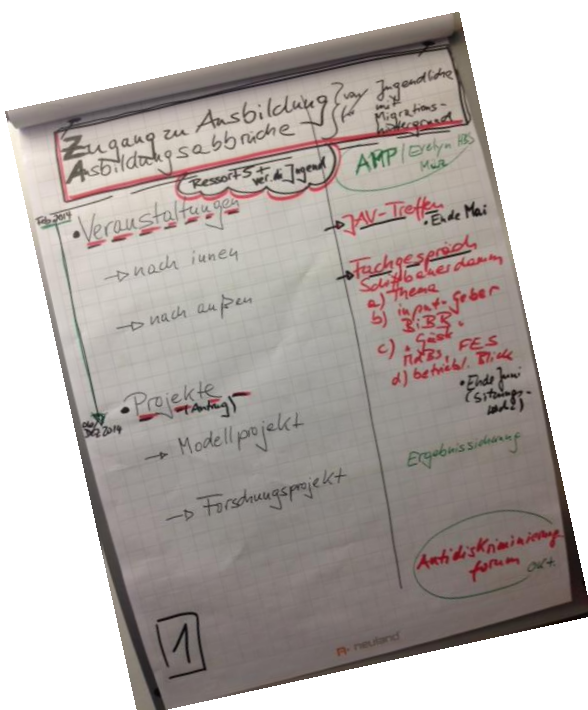 Zugang zu Ausbildung
Ausbildungsabbrüche
von
für
Jugendliche
mit
Migrations-
hintergrund
Ressort 5 +
ver.di Jugend
AMP / Evelyn HBS
Feb 2014
• Veranstaltungen
→ nach innen
→ nach außen
• Projekte
(Antrag)
Dez 2014
→ Modellprojekt
→ Forschungsprojekt
→ JAV-Treffen
• Ende Mai
→ Fachgespräch
Schiffbauerdamm
a) Thema
b) input-Geber
BiBB
c) Gäste
FES
d) betriebl. Blick
• Ende Juni
(Sitzungs-
Ergebnissicherung
Antidiskriminierung
forum Okt.
1
neuland